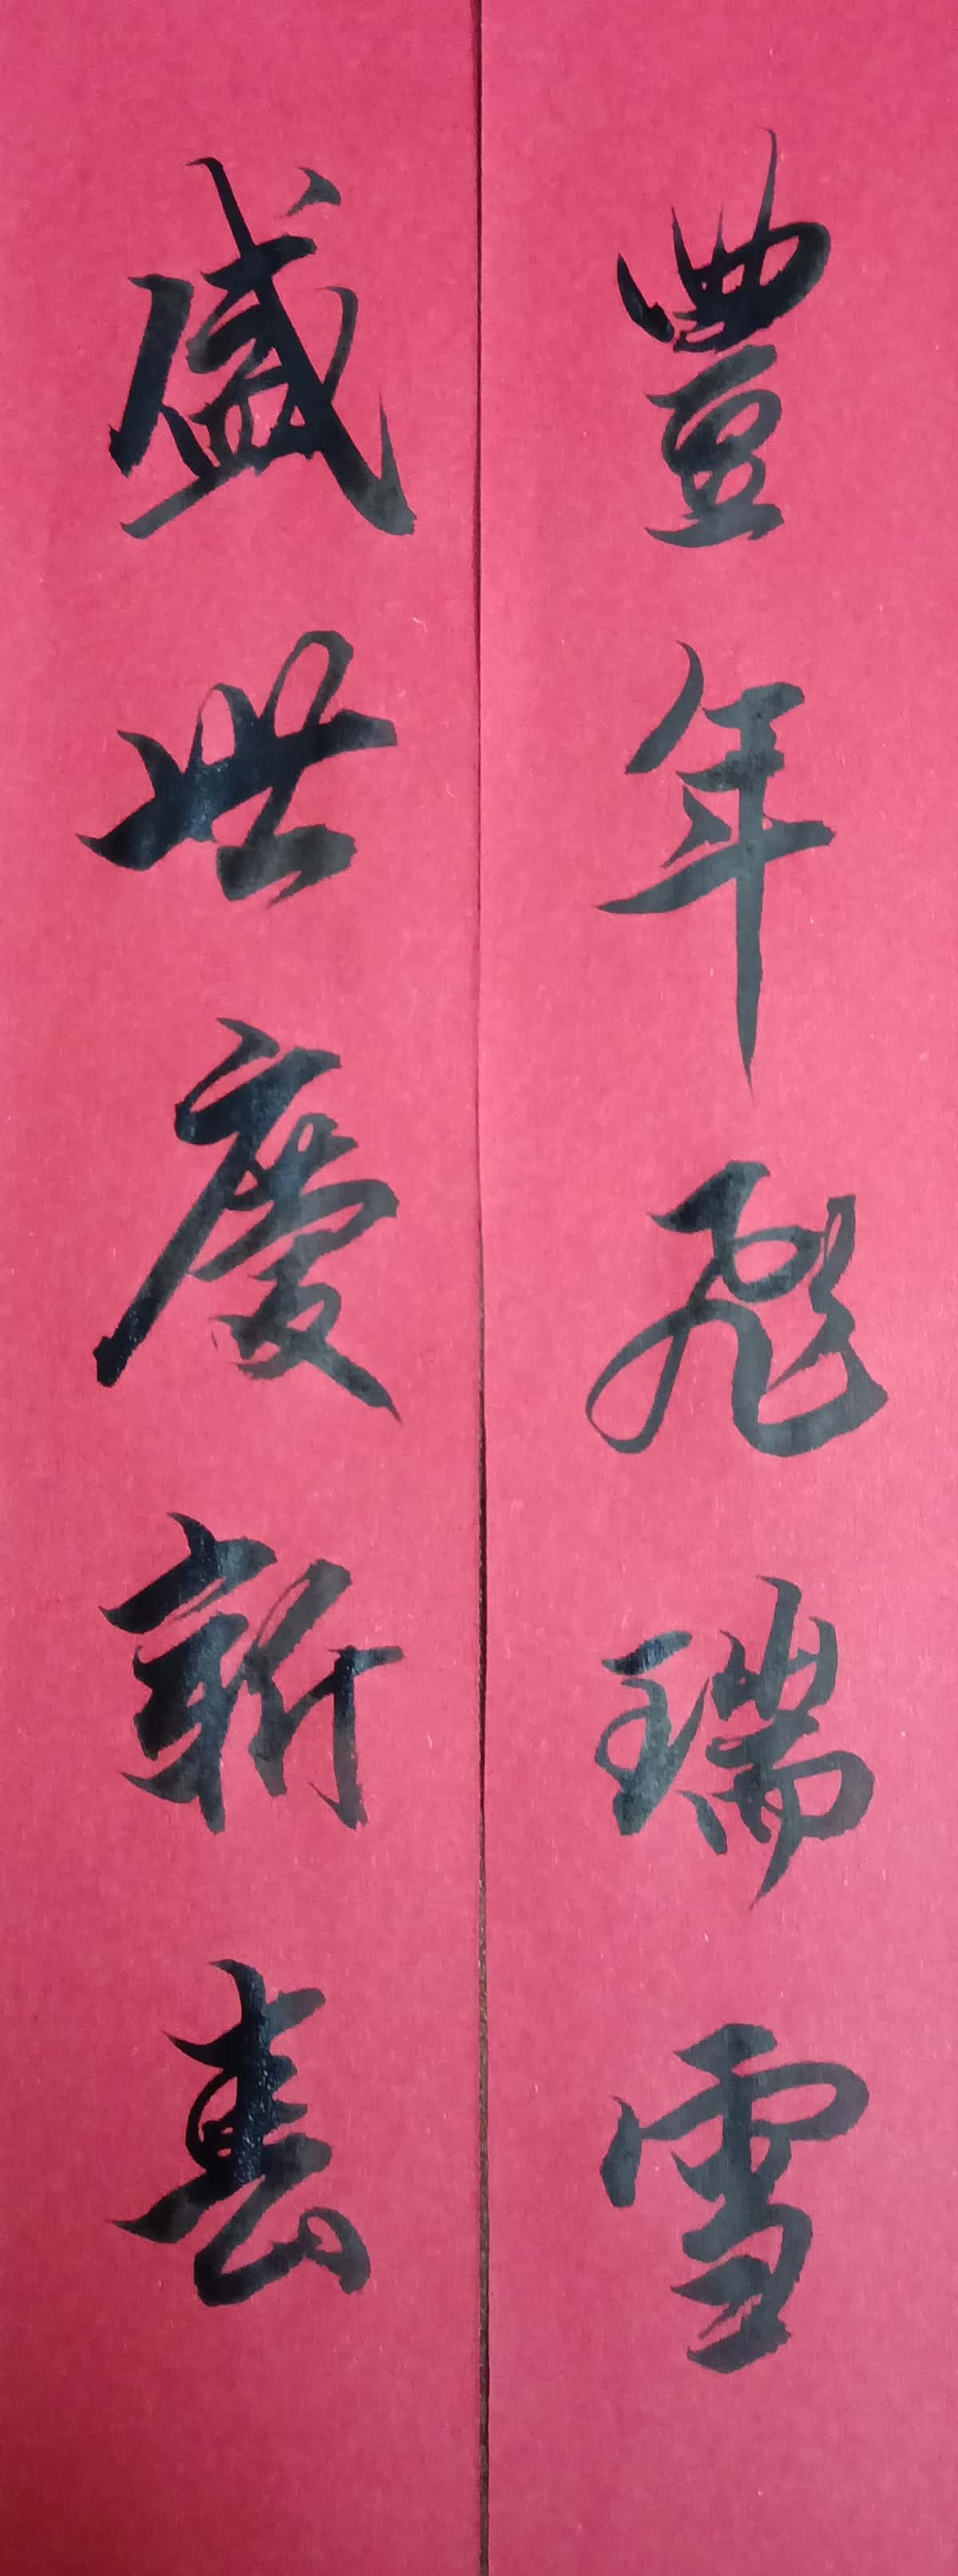 豐年飛瑞雪
盛世慶新春